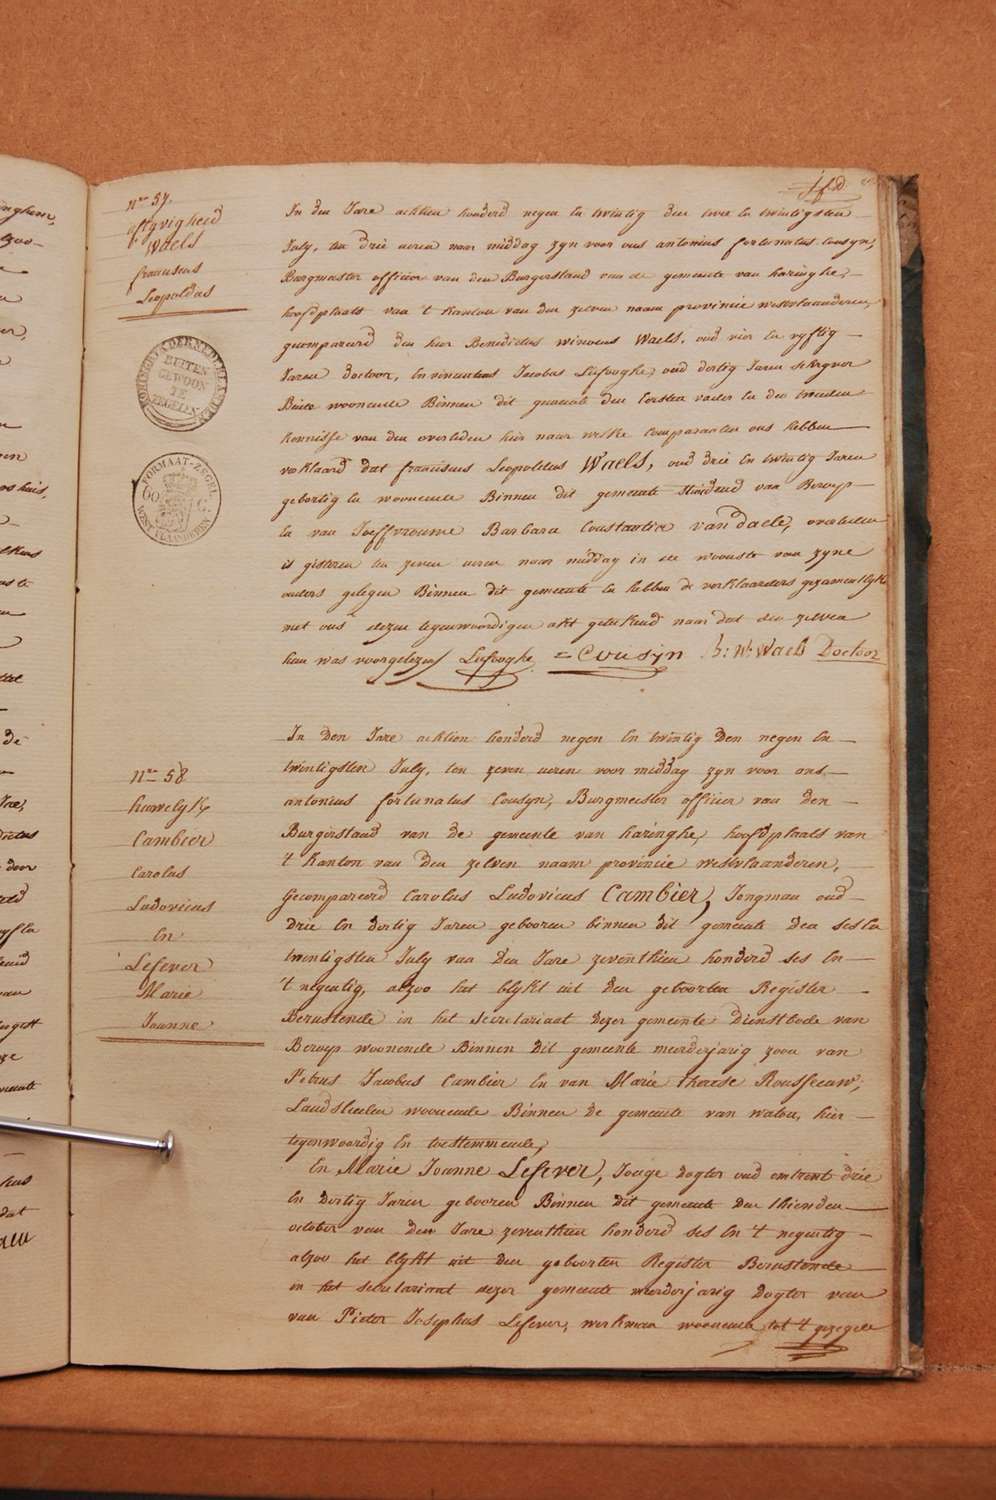 nro 57.
aflyvigheid
Waels
franciscus
Leopoldus
KONINGRYK DER NEDERLANDEN
BUITEN
GEWOON
TE
ZEGELEN
FORMAAT-ZEGEL
60 C.
WEST VLAANDEREN
In den Jare achtien honderd negen en twintig den twee en twintigsten
July, ten drie uren naer middag zyn voor ons antonius fortunatus Cousyn,
Burgmeester officier van den Burgerstand van de gemeente van haringhe,
hoofdplaats van 't kanton van den zelven naam provincie westvlaanderen,
gecompareerd den heer Benedictus winocus Waels, oud vier en vyftig
Jaren doctoor, en vincentius Jacobus Lefooghe, oud dertig Jaren schryver
Beide woonende Binnen dit gemeente den Eersten vader en den tweeden
kennisse van den overleden hier naar welke Comparanten ons hebben
verklaard dat franciscus Leopoldus Waels, oud drie en twintig Jaren
gebortig en woonende Binnen dit gemeente Studend van Beroep
en van Joeffvrouwe Barbara Constantia van daele, overleden
is gisteren ten zeven uren naar middag in de wooniste van zyne
ouders gelegen Binnen dit gemeente en hebben de verklaarders gezamentlyk
met ons dezen tegenwoordigen akt geteekend naar dat den zelven
hun was voorgelezen Lefooghe = Cousyn B: W: Waels Doctoor
nro 58
huwelyk
Cambier
Carolus
Ludovicus
En
Lefever
Marie
Joanne
In den Jare achtien honderd negen en twintig den negen en
twintigsten July, ten zeven uren voor middag zyn voor ons
antonius fortunatus Cousyn, Burgmeester officier van den
Burgerstand van de gemeente van haringhe, hoofdplaats van
't kanton van den zelven naam provincie westvlaanderen,
Gecompareerd Carolus Ludovicus Cambier, Jongman oud
drie en dertig Jaren gebooren binnen dit gemeente den ses en
twintigsten July van den Jare zeventhien honderd ses en
't negentig, alzoo het blykt uit den geboorten Register
Berustende in het secretariaat dezer gemeente Dienstbode van
Beroep woonende Binnen dit gemeente meerderjarig zoon van
Petrus Jacobus Cambier en van Marie therese Rousseeuw,
Landslieden woonende Binnen de gemeente van watou, hier
tegenwoordig en toestemmende,
En Marie Joanne Lefever, Jonge dogter oud omtrent drie
en dertig Jaren gebooren Binnen dit gemeente den thienden
october van den Jare zeventhien honderd ses en 't negentig
alzoo het blykt uit den geboorten Register Berustende
in het secretariaat dezer gemeente meerderjarig dogter van
van Pieter Josephus Lefever, werkman woonende tot 't gezegde